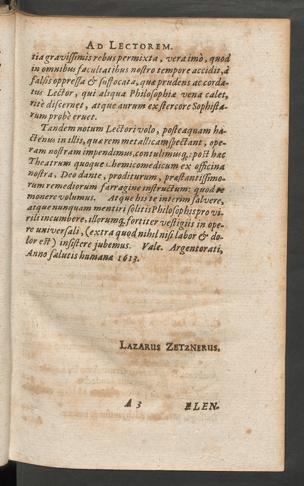 AD LECTOREM.
tia gravissimis rebus permixta, vera imò, quod
in omnibus facultatibus nostro tempore accidit, à
falsis oppressa & suffocata, quæ prudens ac corda-
tus Lector, qui aliqua Philosophiæ vena calet,
ritè discernet, atque aurum ex stercore Sophista-
rum probè eruet.
Tandem notum Lectori volo, posteaquam ha-
ctenus in illis, quæ rem metallicam spectant, ope-
ram nostram impendimus, consulimusq; post hæc
Theatrum quoque Chemicomedicum ex officina
nostra, Deo dante, proditurum, præstantissimo-
rum remediorum farragine instructum: quod te
monere volumus. Atque his te interim salvere,
atque nunquam mentiri solitis Philosophis pro vi-
rili incumbere, illorumq; fortiter vestigiis in ope-
re universali, (extra quod nihil nisi labor & do-
lor est) insistere jubemus. Vale. Argentorati,
Anno salutis humanæ 1613.
LAZARUS ZETZNERUS.
A 3 ELEN-